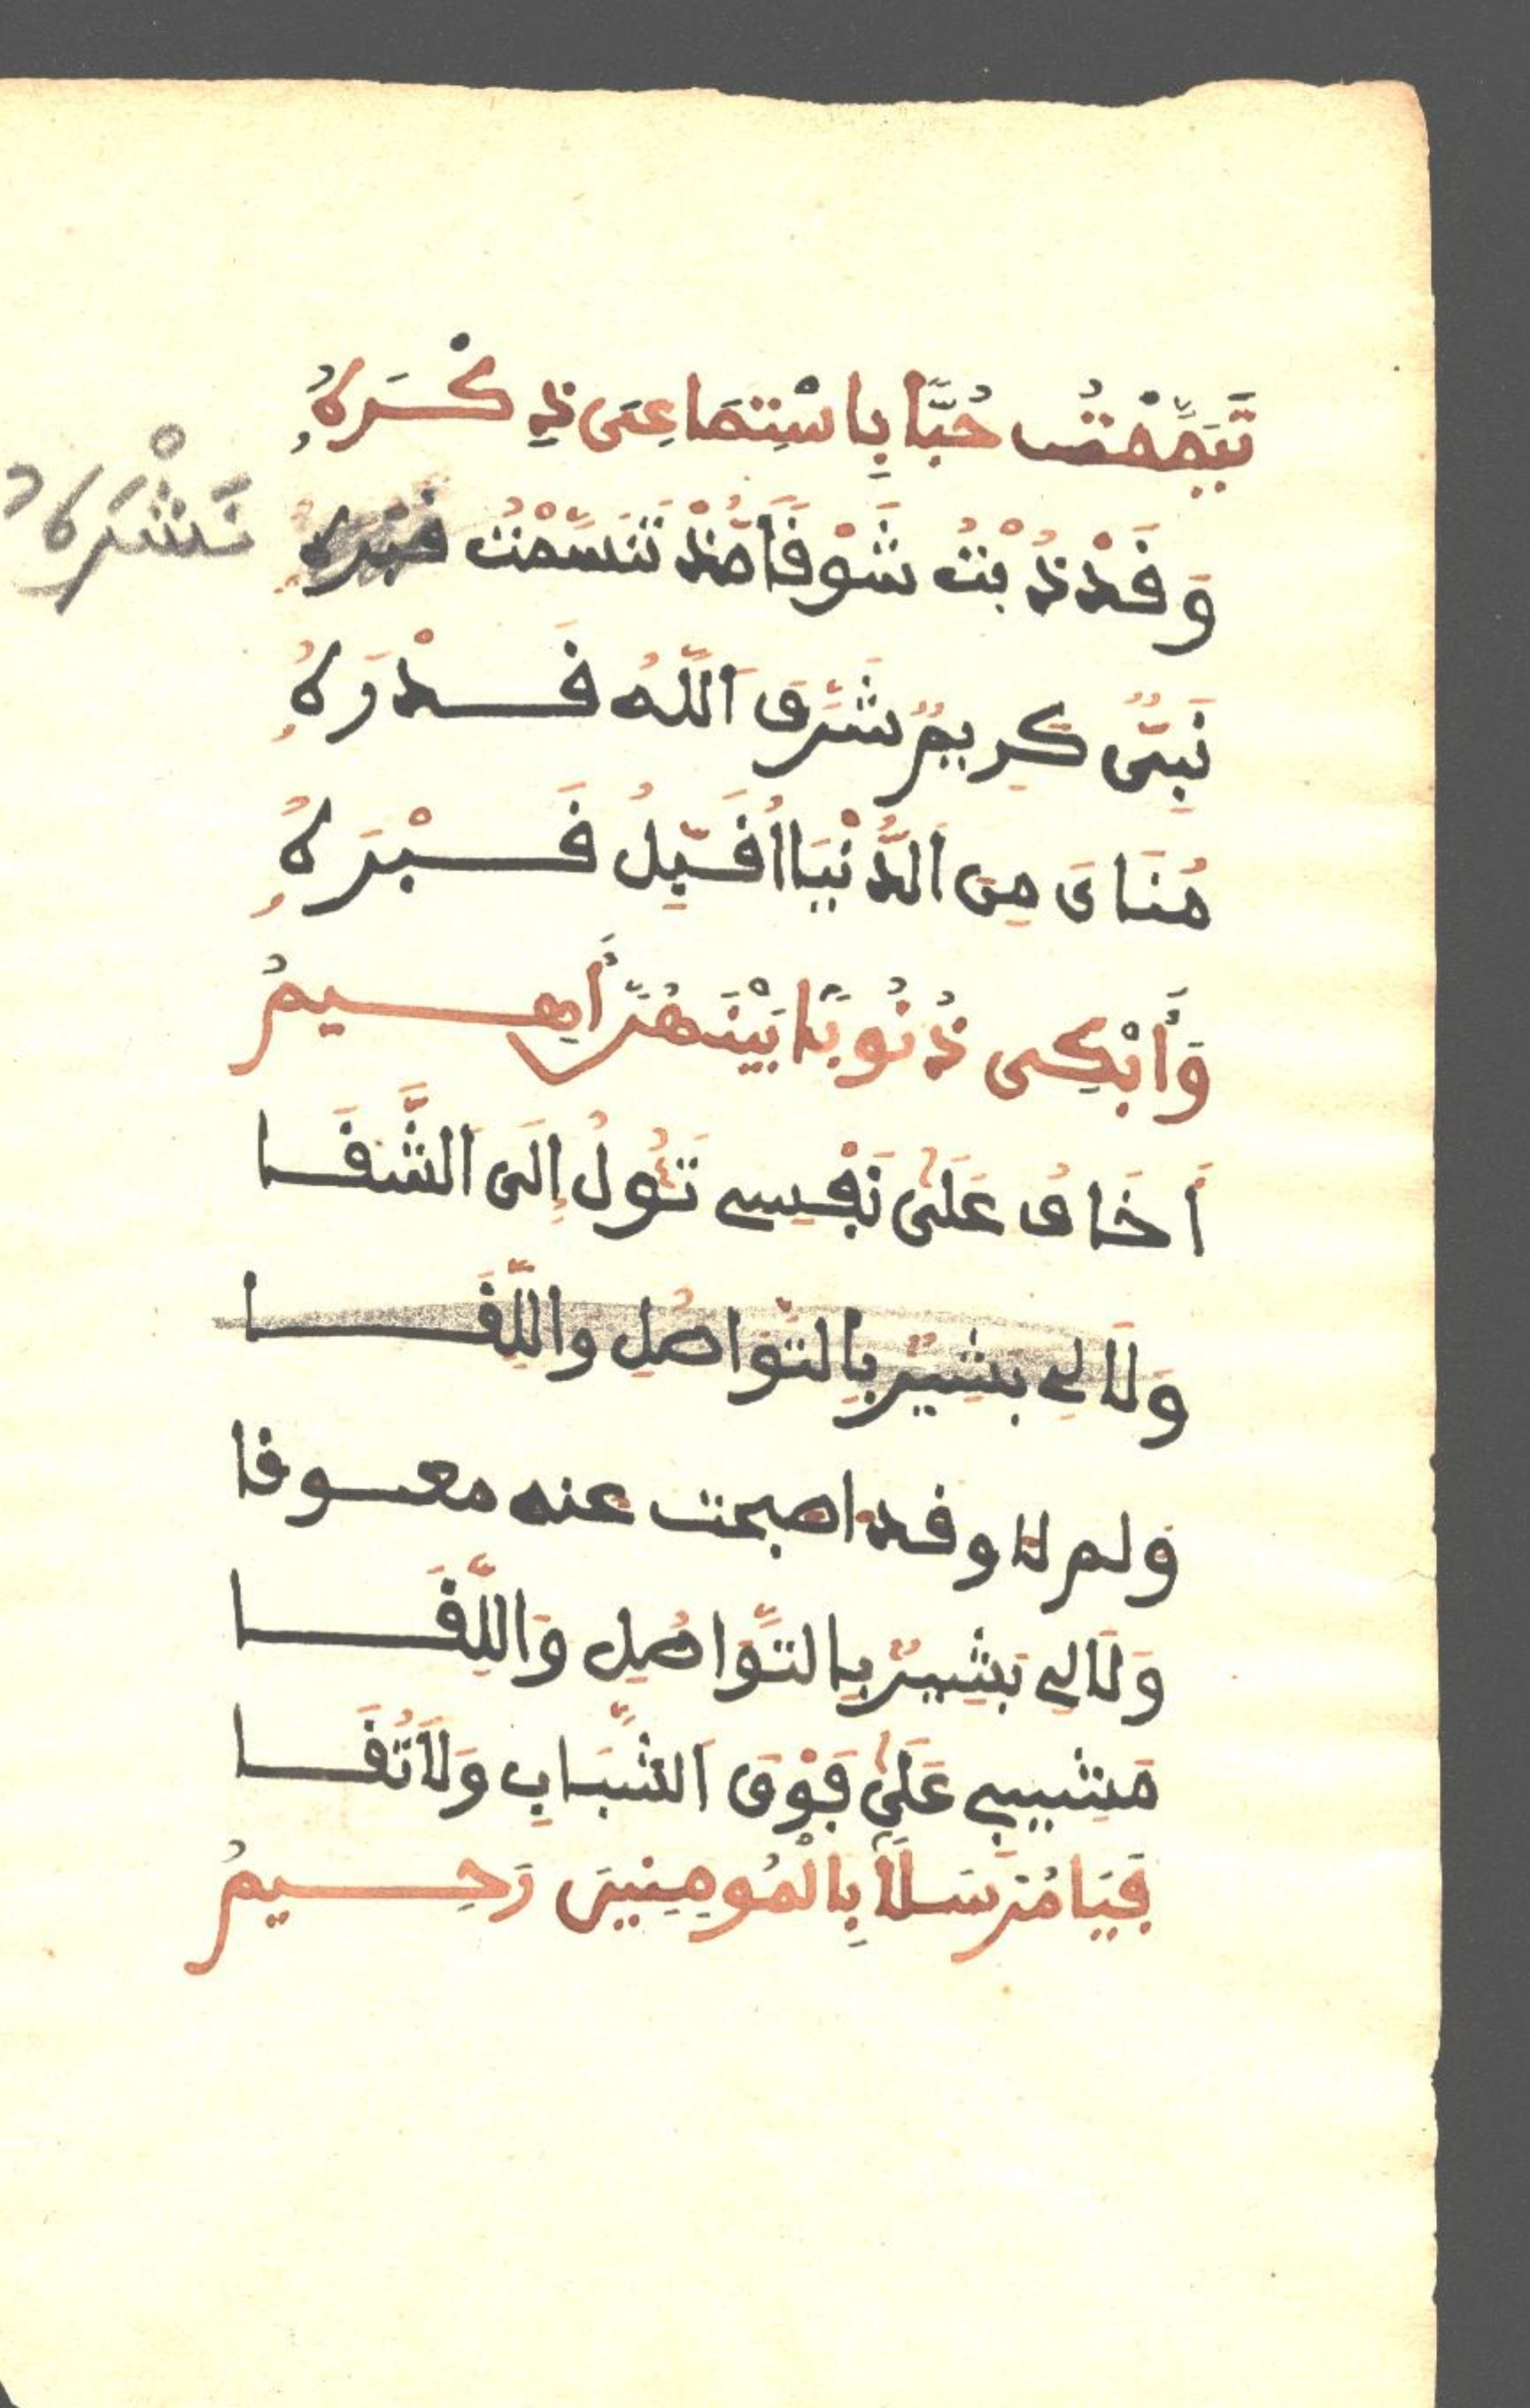 تَيَمَّمْتُ حُبًّا بِاسْتِمَاعِى ذِكْرَهُ
وَقَدْ ذُبْتُ شَوْقًا مُذْ تَنَسَّمْتُ
نَشْرَهُ
نَبِىٌّ كَرِيمٌ شَرَّفَ اَللَّهُ قَدْرَهُ
مُنَاىَ مِنَ اَلدُّنْيَا اُقَبِّلُ قَبْرَهُ
وَأَبْكِى ذُنُوبًا بَيْنَهُنَّ أَهِيمُ
أَخَافُ عَلَى نَفْسِى تَئُولُ إِلَى اَلشَّقَا
وَلَا لِى بَشِيرٌ بِالتَّوَاصُلِ وَاللِّقَا
وَلم لا وقد اصبحت عنه معوقا
وَلَا لِى بَشِيرٌ بِالتَّوَاصُلِ وَاللِّقَا
مَشِيبِى عَلَى فَوْقَ اَلشَّبَابِ وَلَا تُقَا
فَيَا مُرْسَلًا بِالْمُومِنِينَ رَحِيمُ